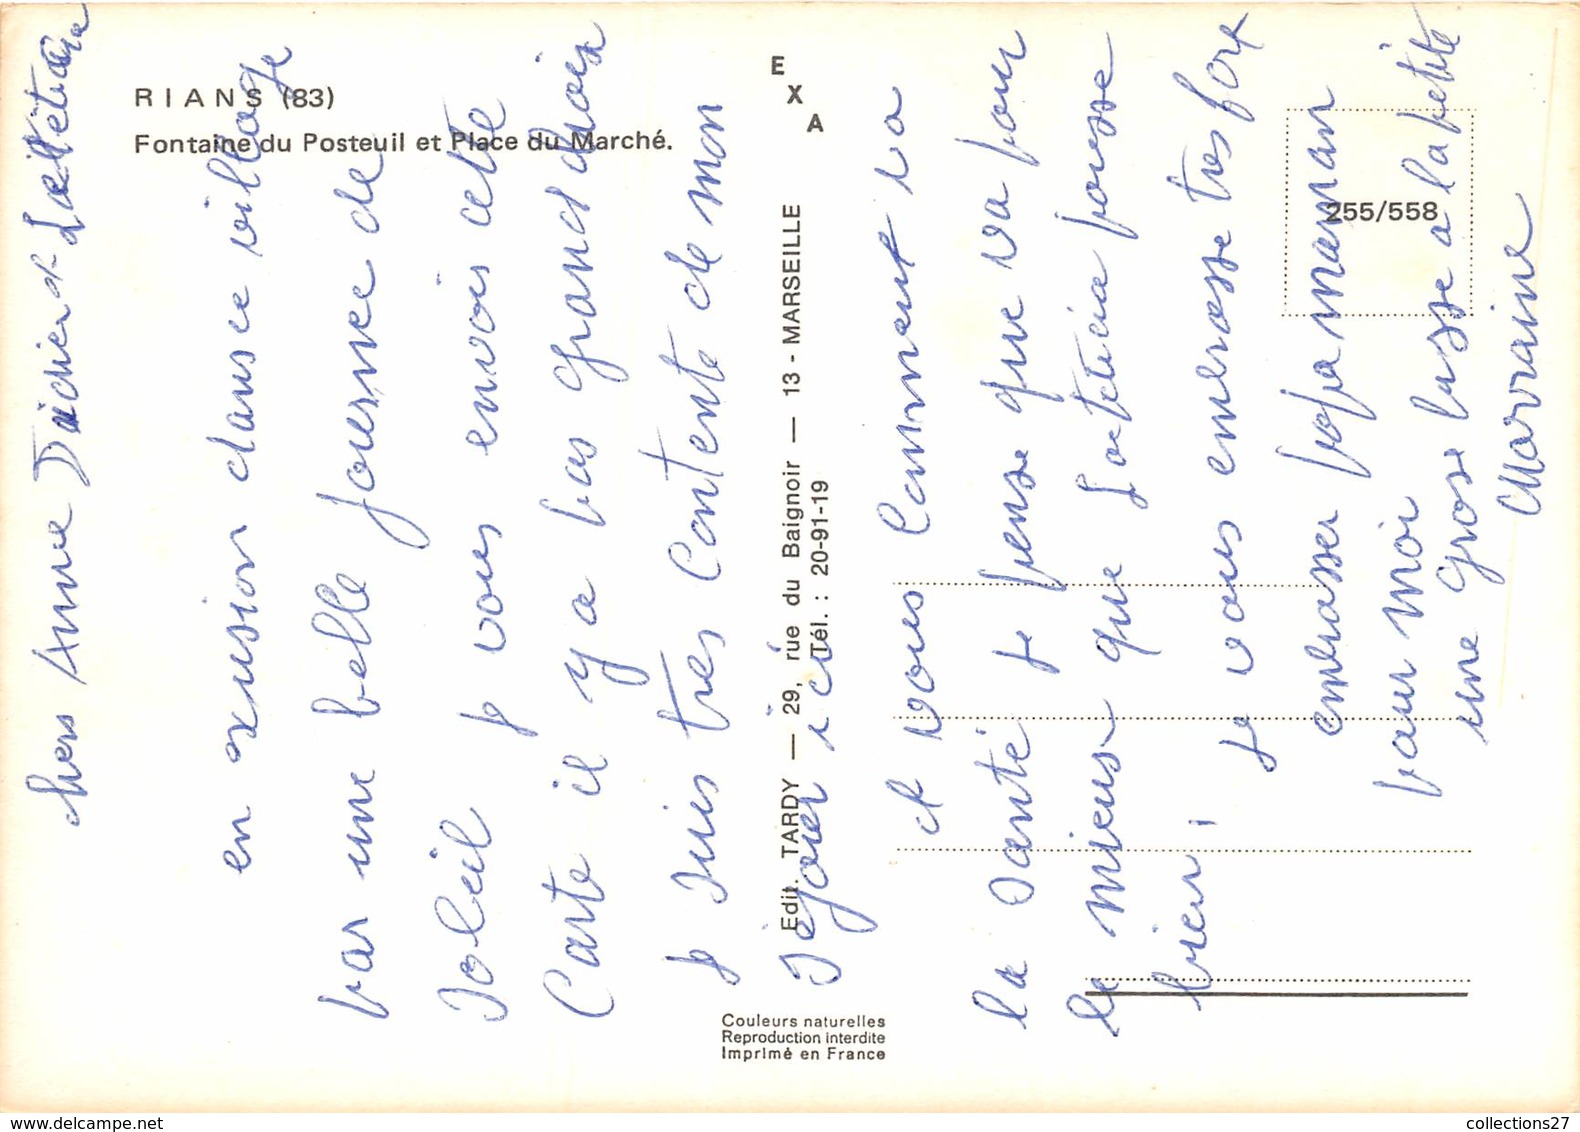 RIANS (83)
Fontaine du Posteuil et Place du Marché.
E
X
A
Edit. TARDY — 29, rue du Baignoir — 13 - MARSEILLE
Tél. : 20-91-19
255/558
Couleurs naturelles
Reproduction interdite
Imprimé en France
chers Anne Didier et Laetetitia
en xusion dans ce village
par une belle journee de
soleil je vous envois cete
Carte il y a pas grand choix
je suis tres Contente de mon
séjour ici
et vous Comment va
la santé je pense que va pour
le mieus que Laeticia pousse
bien
je vous embrasse tres fort
embrasser papa maman
pour moi
une grose busse a la petite
Marraine
collections27